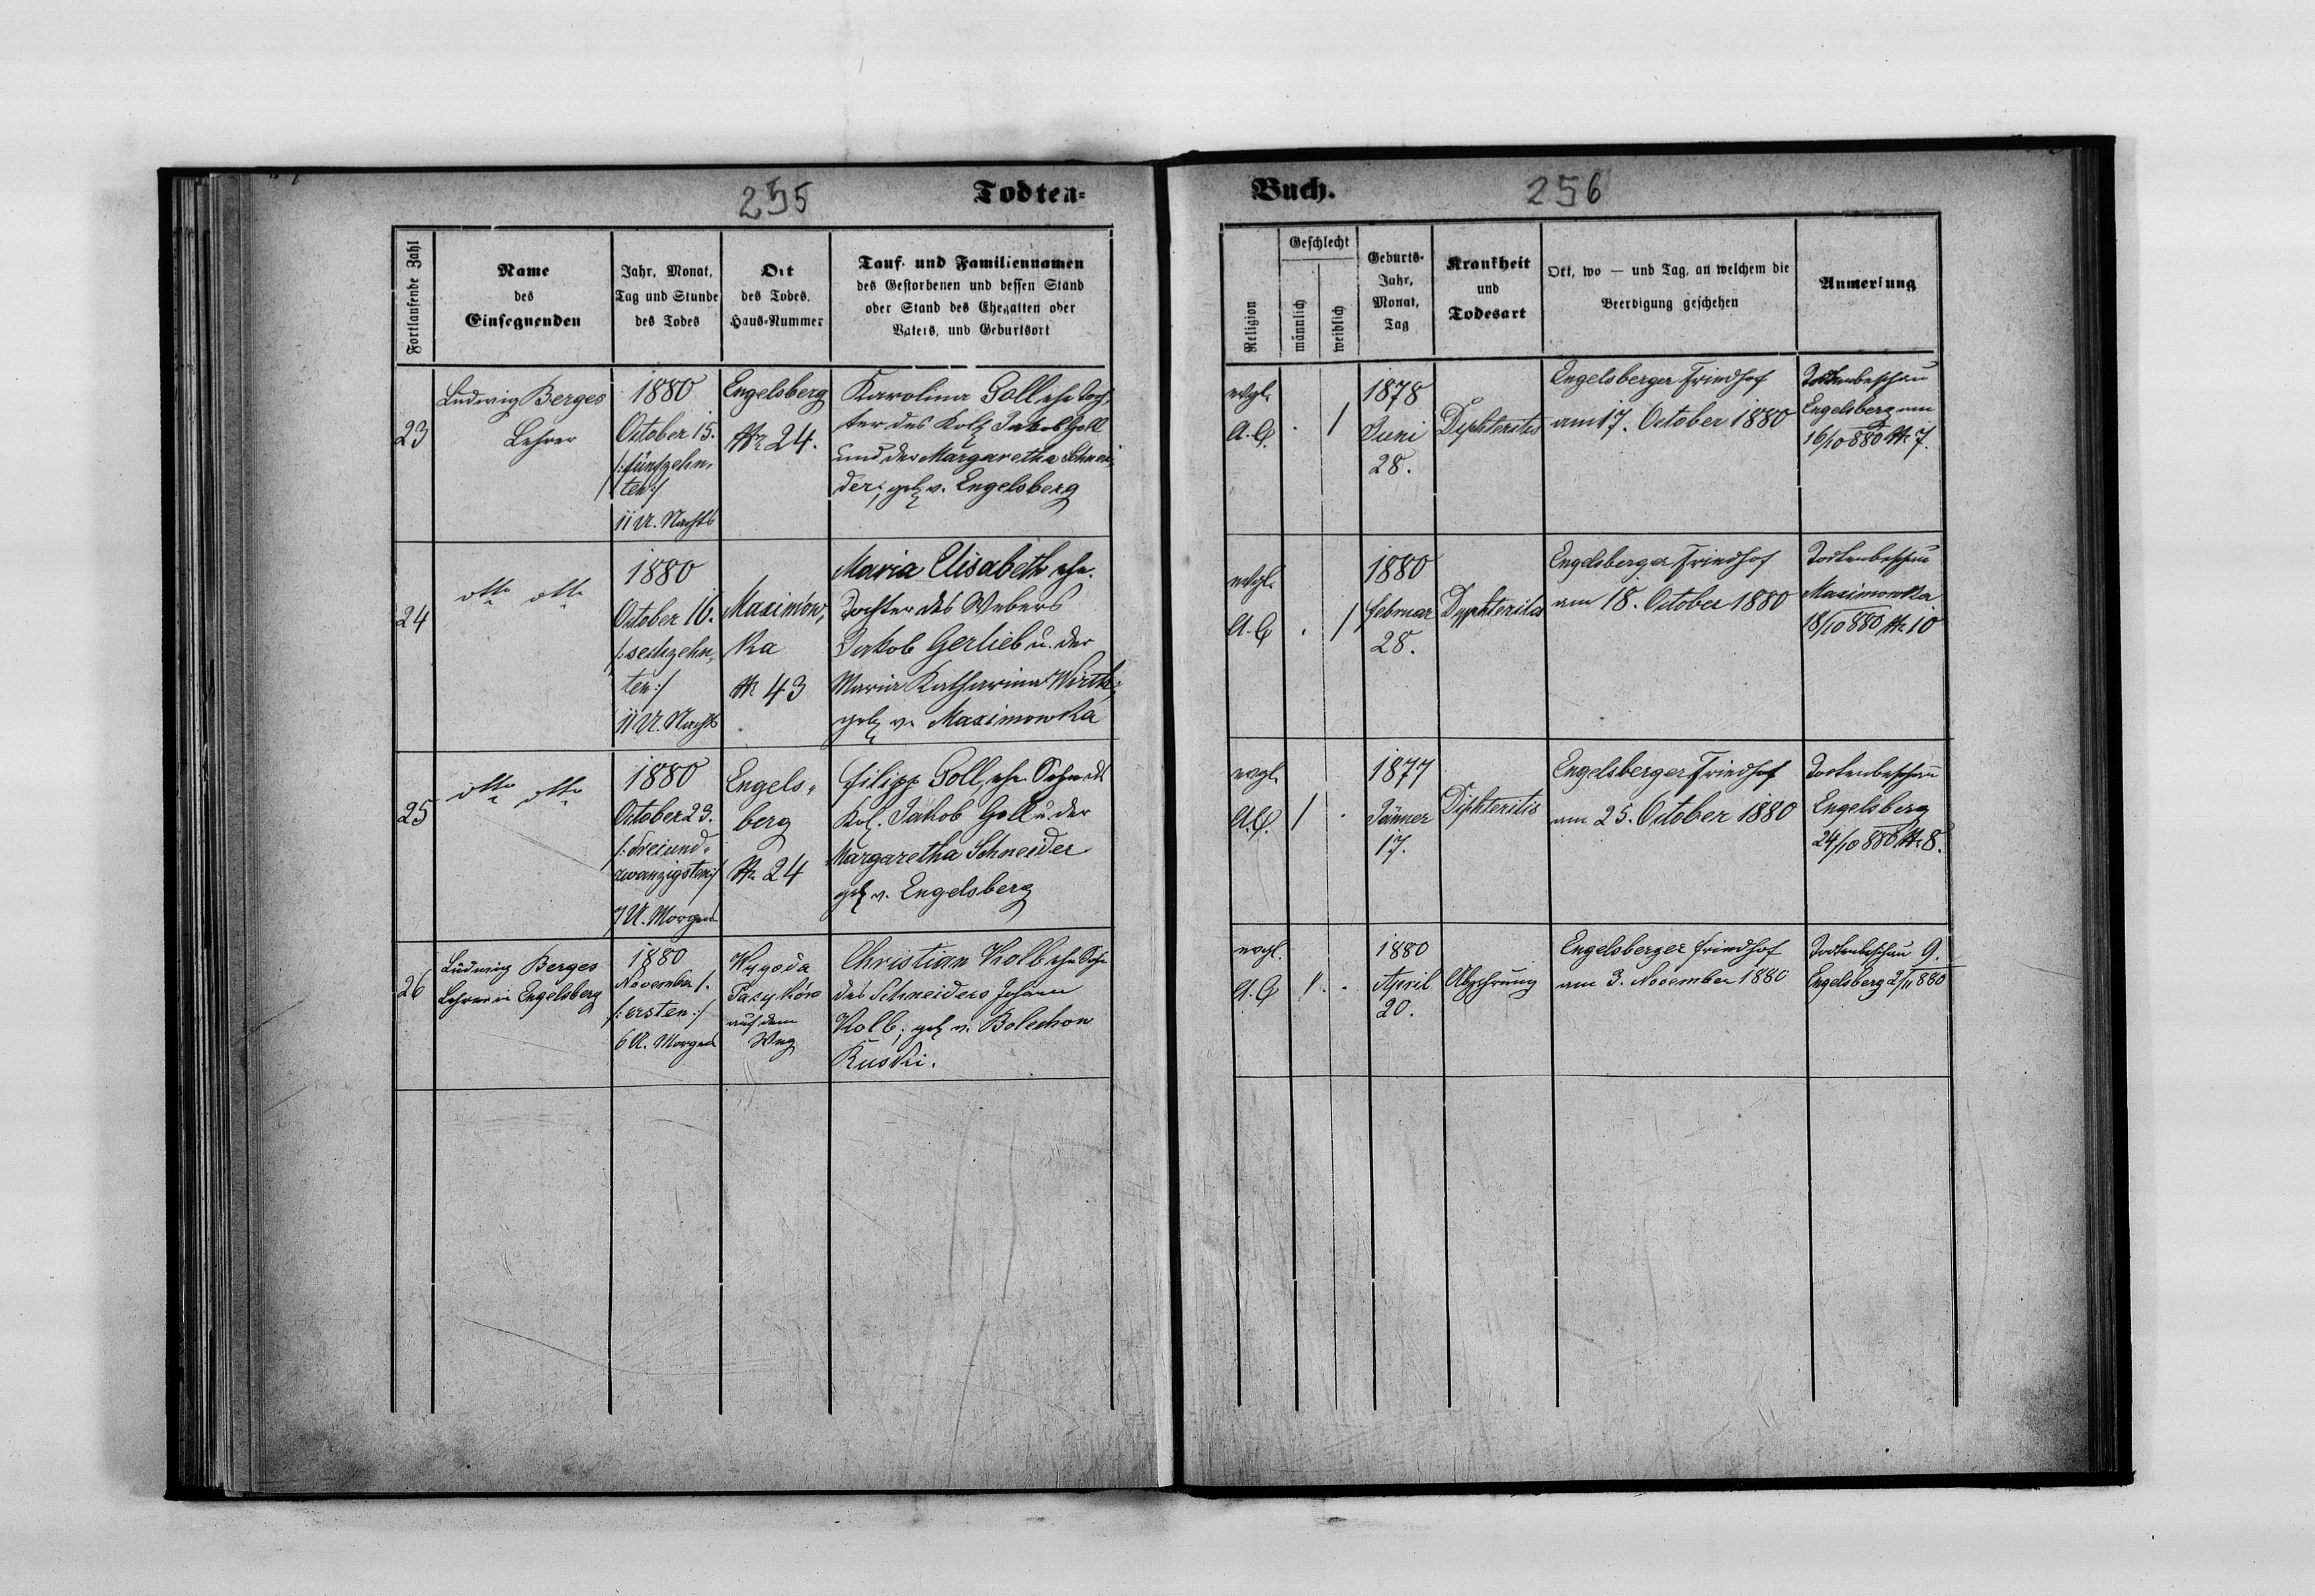 255
Todten=
Fortlaufende Zahl
Name
des
Einsegnenden
Jahr, Monat,
Tag und Stunde
des Todes
Ort
des Todes,
Haus-Nummer
Tauf- und Familiennamen
des Gestorbenen und dessen Stand
oder Stand des Ehegatten oder
Vaters, und Geburtsort
23
Ludwig Berges
Lehrer
1880
October 15.
/:fünfzehn-
ten:/
11 U. Nachts
Engelsberg
Nr. 24.
Karolina Goll, ehe. Toch-
ter des Kol. Jakob Goll
und der Margaretha Schnei-
der, geb. v. Engelsberg
24
otto otto
1880
October 16.
/:sechzehn-
ten:/
11 U. Nachts
Maximow-
ka
Nr. 43
Maria Elisabeth ehe.
Tochter des Webers
Jakob Gerlieb u. der
Maria Katharina Wirth,
geb. v. Maximowka
25
otto otto
1880
October 23.
/:dreiund-
zwanzigsten:/
7 U. Morgens
Engels-
berg
Nr. 24
Filipp Goll, ehe. Sohn des
Kol. Jakob Goll u. der
Margaretha Schneider
geb. v. Engelsberg
26
Ludwig Berges
Lehrer in Engelsberg
1880
November 1.
/:ersten:/
6 U. Morgens
Wygoda
auf dem
Weg
Christian Kolb ehe. Sohn
des Schneiders Johann
Kolb, geb. v. Bolechow
Ruski.
Buch.
256
Religion
Geschlecht
männlich
weiblich
Geburts-
Jahr,
Monat,
Tag
Krankheit
und
Todesart
Ort, wo — und Tag, an welchem die
Beerdigung geschehen
Anmerkung
evgl.
A. C.
. /
1878
Juni
28.
Diphteritis
Engelsberger Friedhof
am 17. October 1880
Todtenbeschau
Engelsberg am
16/10 880 Nr. 7.
evgl.
A. C.
. /
1880
Februar
28.
Dyphteritis
Engelsberger Friedhof
am 18. October 1880
Todtenbeschau
Maximowka
18/10 880 Nr. 10
evgl.
A. C.
/ .
1877
Jänner
17.
Diphteritis
Engelsberger Friedhof
am 25. October 1880
Todtenbeschau
Engelsberg
24/10 880 Nr. 8.
evgl.
A. C.
/ .
1880
April
20.
Abzehrung
Engelsberger Friedhof
am 3. November 1880
Todtenbeschau 9.
Engelsberg 2/11 880